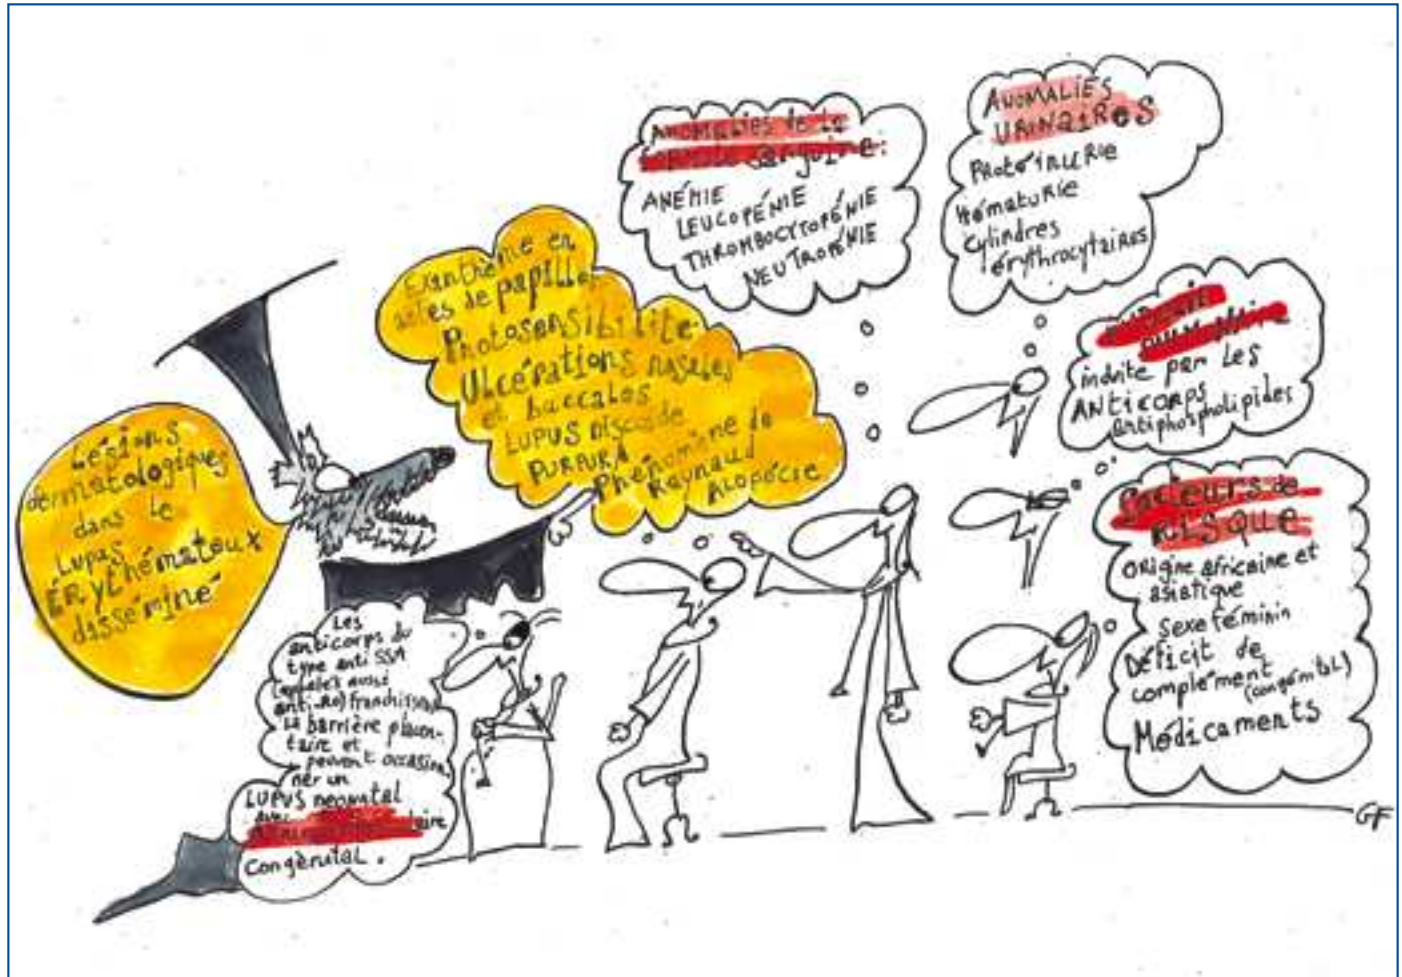 Lésions
dermatologiques
dans le
Lupus
ÉRYthémateux
disséminé
Exanthème en
ailes de papillon
Photosensibilité
Ulcérations nasales
et buccales
LUPUS Discoïde
PURPURA
Phénomène de
Raynaud
Alopécie
Anomalies de la
formule sanguine:
ANÉMIE
LEUCOPÉNIE
THROMBOCYTOPÉNIE
NEUTROPÉNIE
ANOMALIES
URINAIRES
Protéinurie
Hématurie
Cylindres
érythrocytaires
induite par les
ANTICORPS
antiphospholipides
Facteurs de
RISque
origine africaine et
asiatique
sexe féminin
Déficit de
complément (congénital)
Médicaments
Les
anticorps du
type anti SSA
(appelés aussi
anti-Ro) franchissent
la barrière placen-
taire et
peuvent occasion
ner un
LUPUS neonatal
avec
congènital.
GF